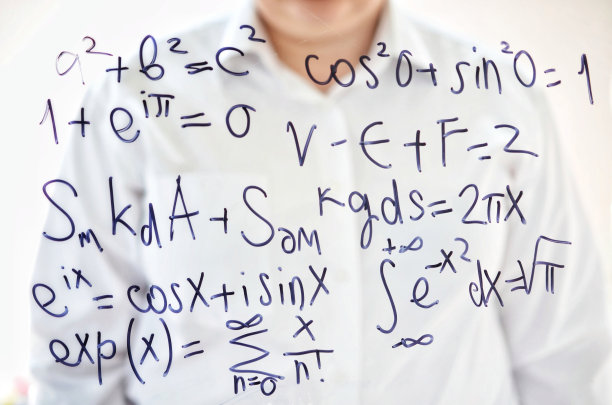 a² + b² = c²
cos²0 + sin²0 = 1
1 + e^iπ = 0
V - E + F = 2
S_M kdA + S_∂M kgds = 2πX
e^ix = cosx + i sinx
∫_-∞^+∞ e^-x² dx = √π
exp(x) = ∑_n=0^∞ x/n!